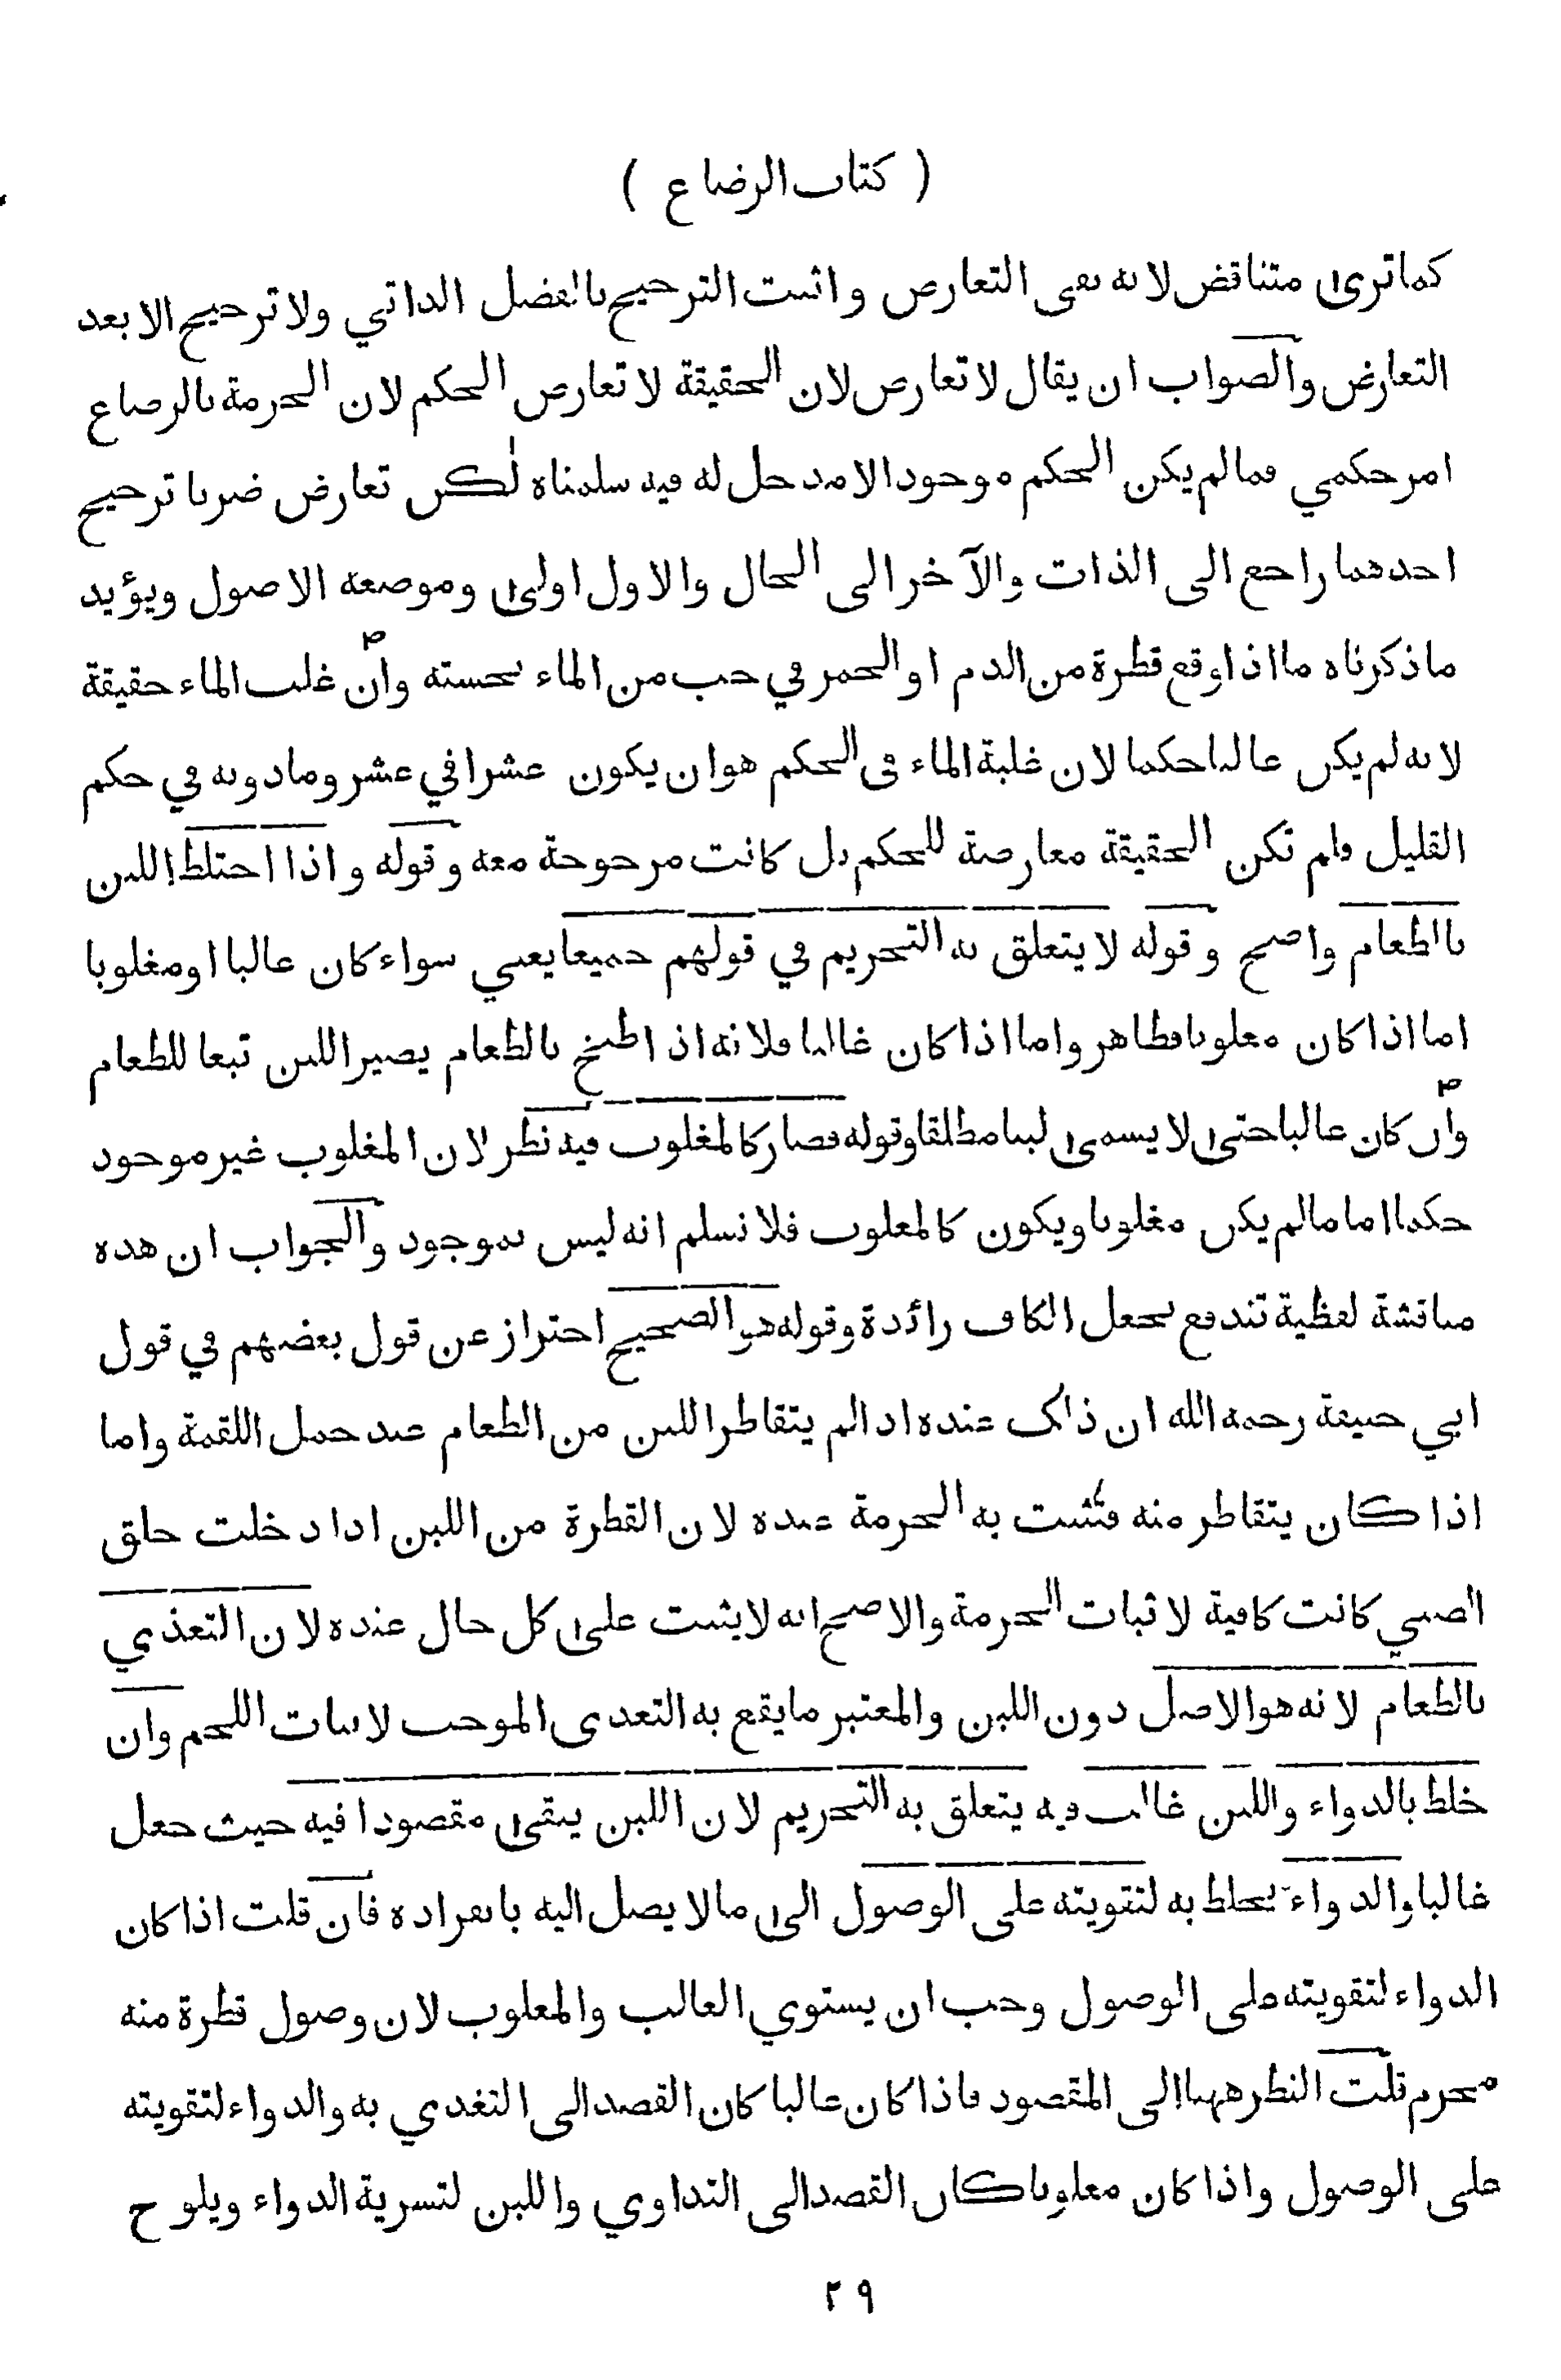 ( كتاب الرضاع )
كما ترى متناقض لانه نفى التعارض واثبت الترجيح بالفضل الذاتي ولا ترجيح الا بعد
التعارض والصواب ان يقال لا تعارض لان الحقيقة لا تعارض الحكم لان الحرمة بالرضاع
امر حكمي فما لم يكن الحكم موجودا لا مدخل له فيه سلمناه لكن تعارض ضربا ترجيح
احدهما راجع الى الذات والآخر الى الحال والاول اولى وموضعه الاصول ويؤيد
ما ذكرناه ما اذا وقع قطرة من الدم او الخمر في حب من الماء نجسته وان غلب الماء حقيقة
لانه لم يكن غالبا حكما لان غلبة الماء في الحكم هو ان يكون عشرا في عشر وما دونه في حكم
القليل فلم تكن الحقيقة معارضة للحكم بل كانت مرجوحة معه وقوله واذا اختلط اللبن
بالطعام واضح وقوله لا يتعلق به التحريم في قولهم جميعا يعني سواء كان غالبا او مغلوبا
اما اذا كان مغلوبا فظاهر واما اذا كان غالبا فلانه اذ اطبخ بالطعام يصير اللبن تبعا للطعام
وان كان غالبا حتى لا يسمى لبنا مطلقا وقوله فصار كالمغلوب فيه نظر لان المغلوب غير موجود
حكما اما ما لم يكن مغلوبا ويكون كالمغلوب فلا نسلم انه ليس بموجود والجواب ان هذه
مناقشة لفظية تندفع بجعل الكاف زائدة وقوله هو الصحيح احتراز عن قول بعضهم في قول
ابي حنيفة رحمه الله ان ذلك عنده اذا لم يتقاطر اللبن من الطعام عند حمل اللقمة واما
اذا كان يتقاطر منه فتثبت به الحرمة عنده لان القطرة من اللبن اذا دخلت حلق
الصبي كانت كافية لاثبات الحرمة والاصح انه لا يثبت على كل حال عنده لان التغذي
بالطعام لانه هو الاصل دون اللبن والمعتبر ما يقع به التغذى الموجب لانبات اللحم وان
خلط بالدواء واللبن غالب فيه يتعلق به التحريم لان اللبن يبقى مقصودا فيه حيث جعل
غالبا والدواء يخلط به لتقويته على الوصول الى ما لا يصل اليه بانفراده فان قلت اذا كان
الدواء لتقويته على الوصول وجب ان يستوي الغالب والمغلوب لان وصول قطرة منه
محرم قلت النظر ههنا الى المقصود فاذا كان غالبا كان القصد الى التغذي به والدواء لتقويته
على الوصول واذا كان مغلوبا كان القصد الى التداوي واللبن لتسرية الدواء ويلوح
٢٩